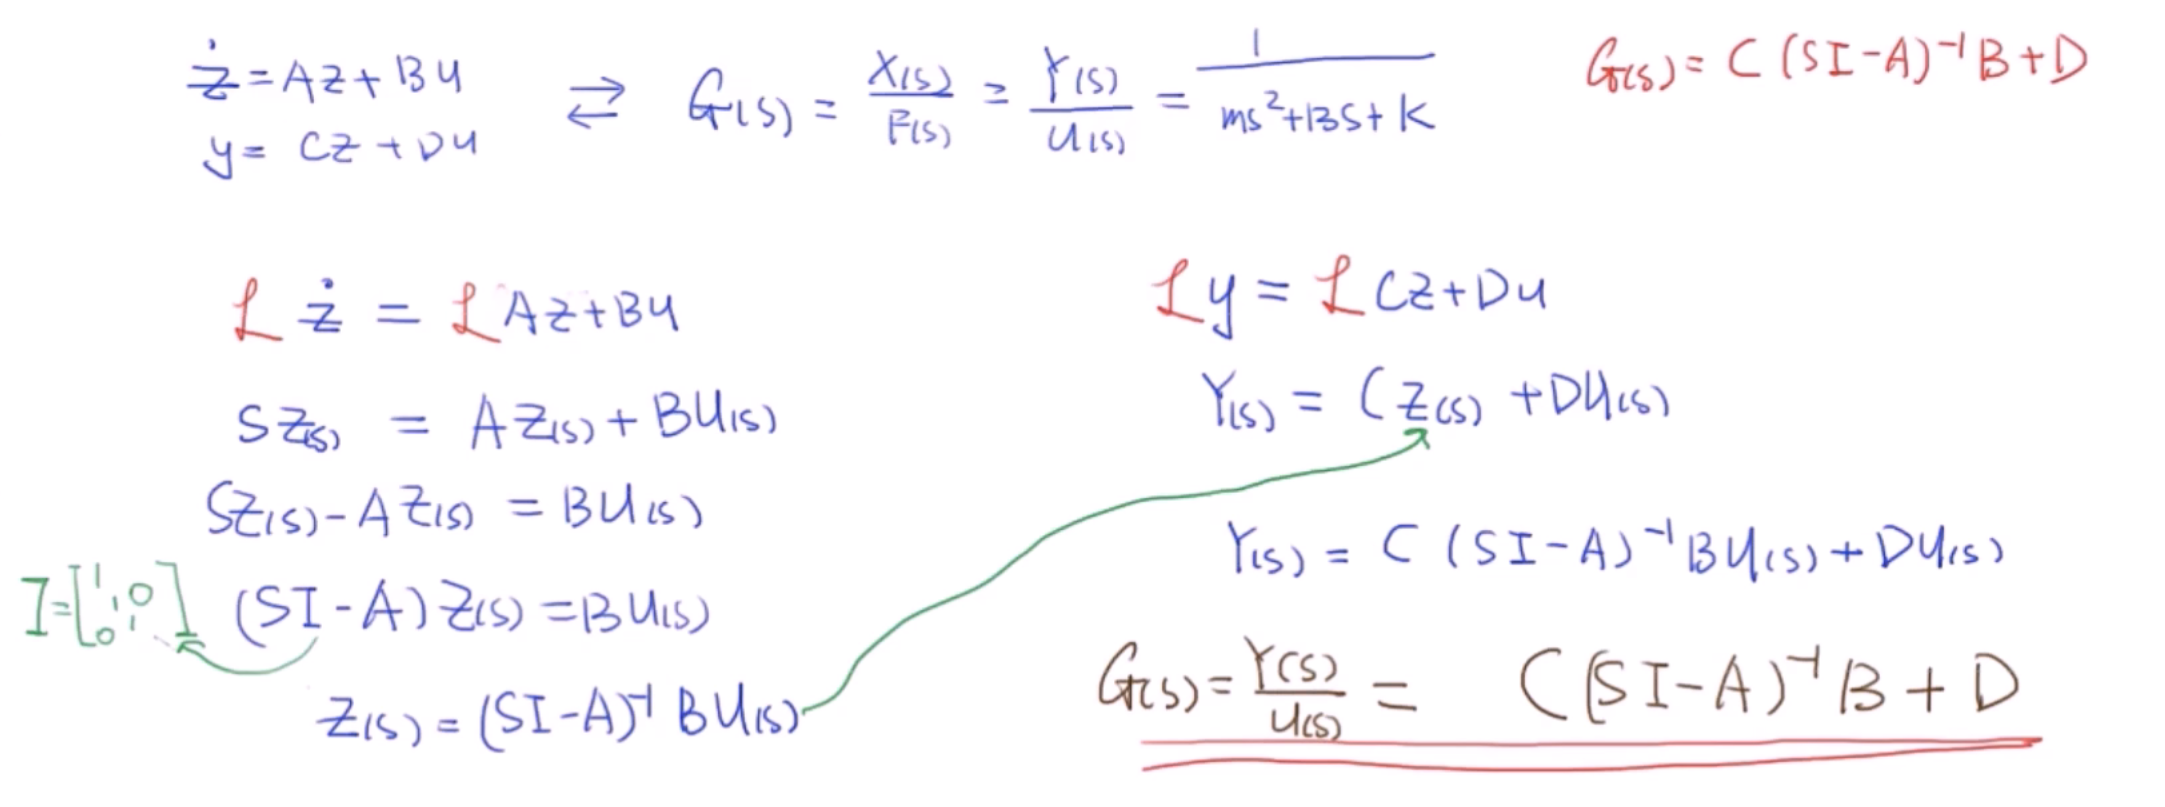 ż = Az + Bu
y = Cz + Du
⇄ G(s) = X(s)/F(s) = Y(s)/U(s) = 1/(ms²+Bs+K)
G(s) = C(SI-A)⁻¹B+D
ℒ ż = ℒ Az+Bu
SZ(s) = AZ(s) + BU(s)
SZ(s) - AZ(s) = BU(s)
I = [1 1 0 0 1 1]
(SI-A)Z(s) = BU(s)
Z(s) = (SI-A)⁻¹ BU(s)
ℒ y = ℒ Cz+Du
Y(s) = CZ(s) + DU(s)
Y(s) = C(SI-A)⁻¹BU(s) + DU(s)
G(s) = Y(s)/U(s) = C(SI-A)⁻¹B + D